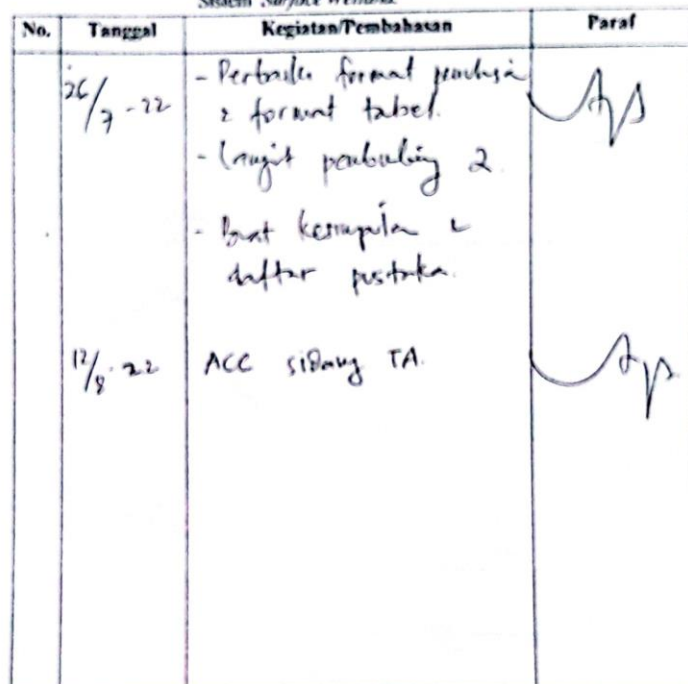 No. Tanggal Kegiatan/Pembahasan Paraf
26/7-22 - Perbaiki format penulisan
& format tabel.
- Lanjut pembimbing 2
- Buat kesimpulan &
daftar pustaka.
12/8-22 ACC sidang TA.